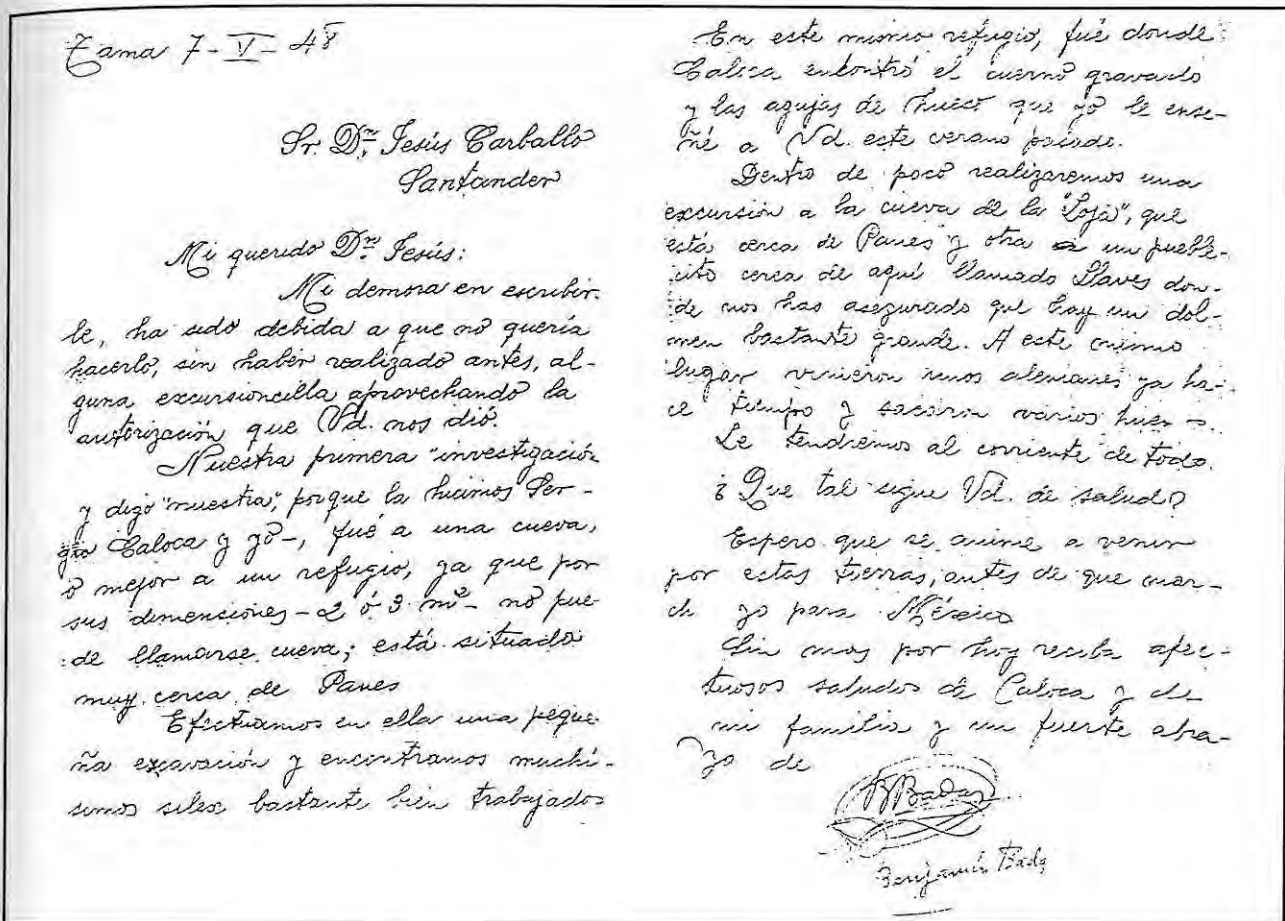 Tama 7-V-48
Sr. Dn. Jesús Carballo
Santander
Mi querido Dn. Jesús:
Mi demora en escribir-
le, ha sido debida a que no quería
hacerlo, sin haber realizado antes, al-
guna excursioncilla aprovechando la
autorización que Vd. nos dió.
Nuestra primera "investigación
y digo "nuestra", porque la hicimos Ser-
gio Caloca y yo-, fué a una cueva,
o mejor a un refugio, ya que por
sus dimensiones - 2 ó 3 m² - no pue-
de llamarse cueva; está situado
muy cerca de Panes
Efectuamos en ella una peque-
ña excavación y encontramos muchí-
simos silex bastante bien trabajados
En este mismo refugio, fué donde
Caloca encontró el cuerno gravado
y las agujas de hueso que yo le ense-
ñé a Vd. este verano pasado.
Dentro de poco realizaremos una
excursión a la cueva de la "Loja", que
está cerca de Panes y otra a un pueble-
cito cerca de aquí llamado Llaves don-
de nos has asegurado que hay un dol-
men bastante grande. A este mismo
lugar vinieron unos alemanes ya ha-
ce tiempo y sacaron varios
Le tendremos al corriente de todo.
¿Que tal sigue Vd. de salud?
Espero que se anime a venir
por estas tierras, antes de que mar-
ch yo para México
Sin mas por hoy reciba afec-
tuosos saludos de Caloca y de
mi familia y un fuerte abra-
zo de
BBada
Benjamín Bada